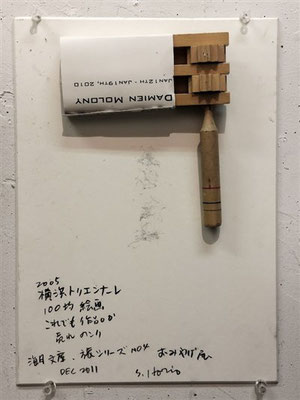 DAMIEN MOLONY
JAN 12TH - JAN 19TH, 2010
2005
横浜トリエンナーレ
100均 絵画
これでも作品か
売れ のこり
文庫 ・ 旅シリーズ NO4 おみやげ
DEC 2011
S. Horio